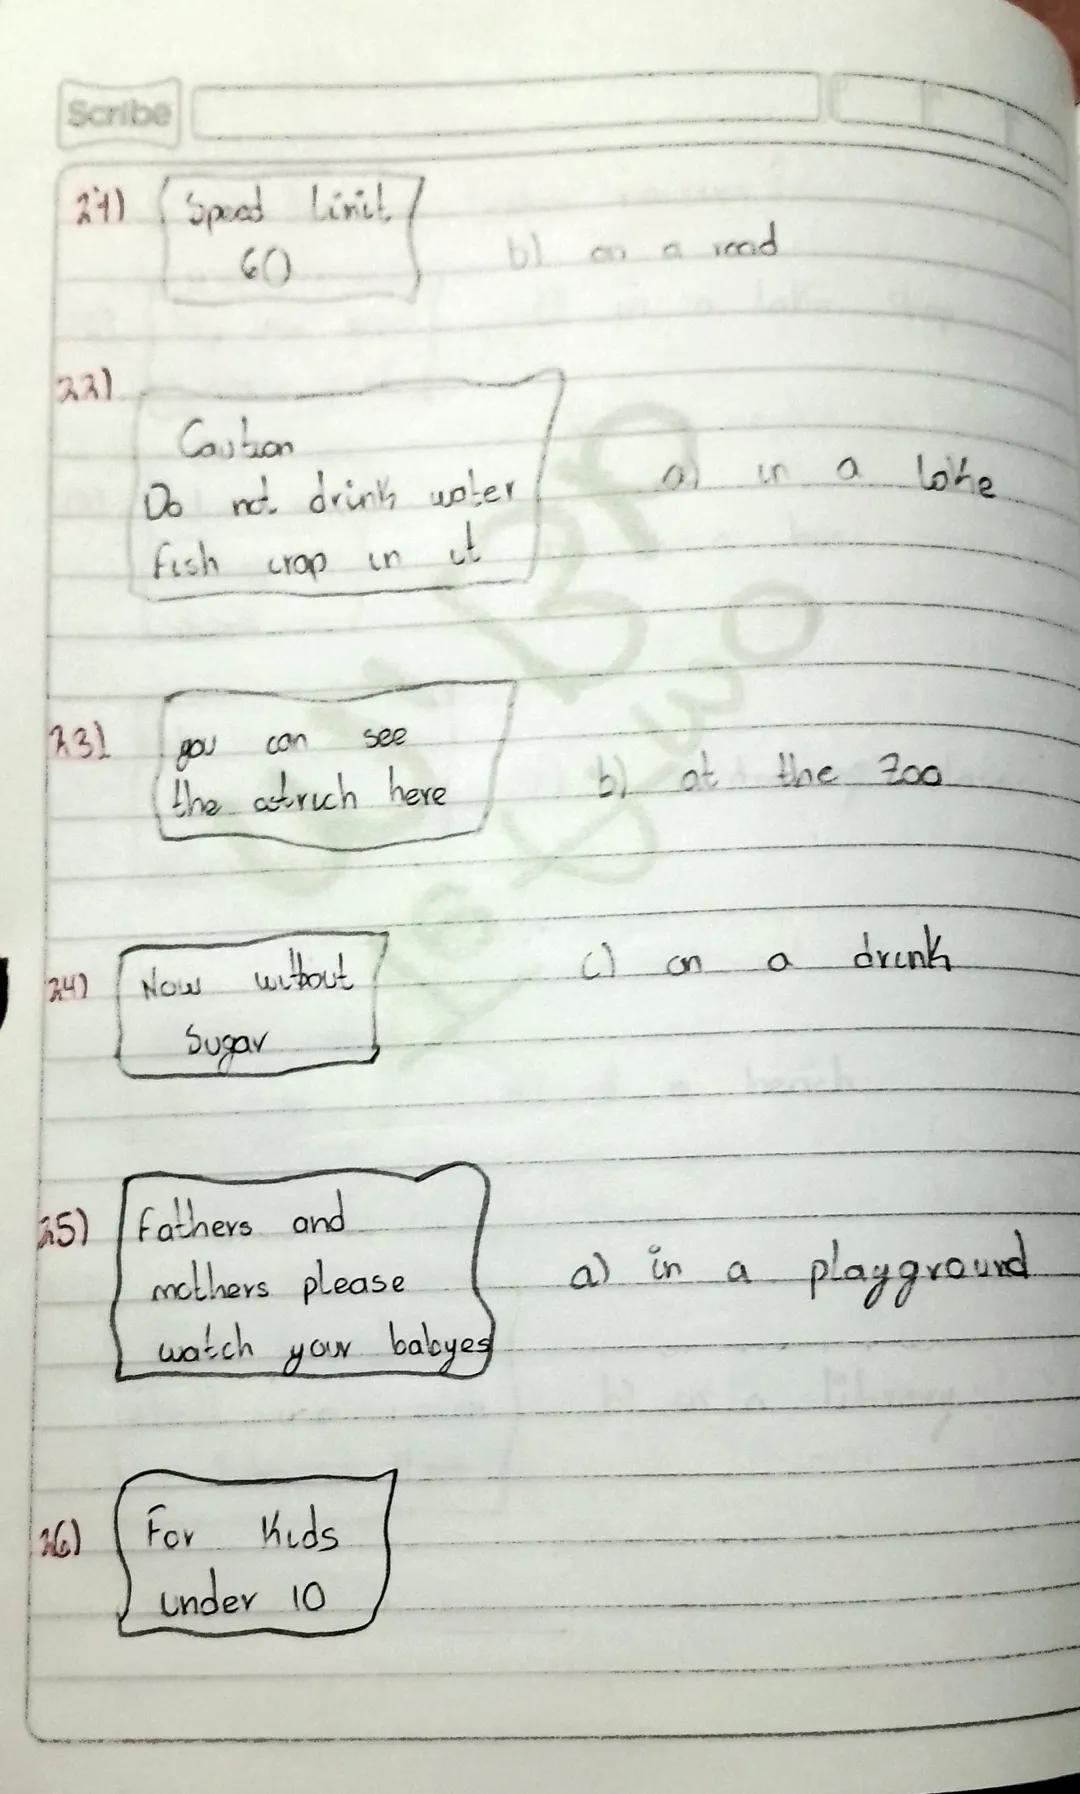 Scribe
21) Speed Limit
60
b) on a road
22)
Caution
Do not drink water
fish crap in it
a) in a lake
23) you can see
the ostrich here
b) at the zoo
24) Now without
Sugar
c) on a drink
25) Fathers and
mothers please
watch your babyes
a) in a playground
26) For Kids
under 10